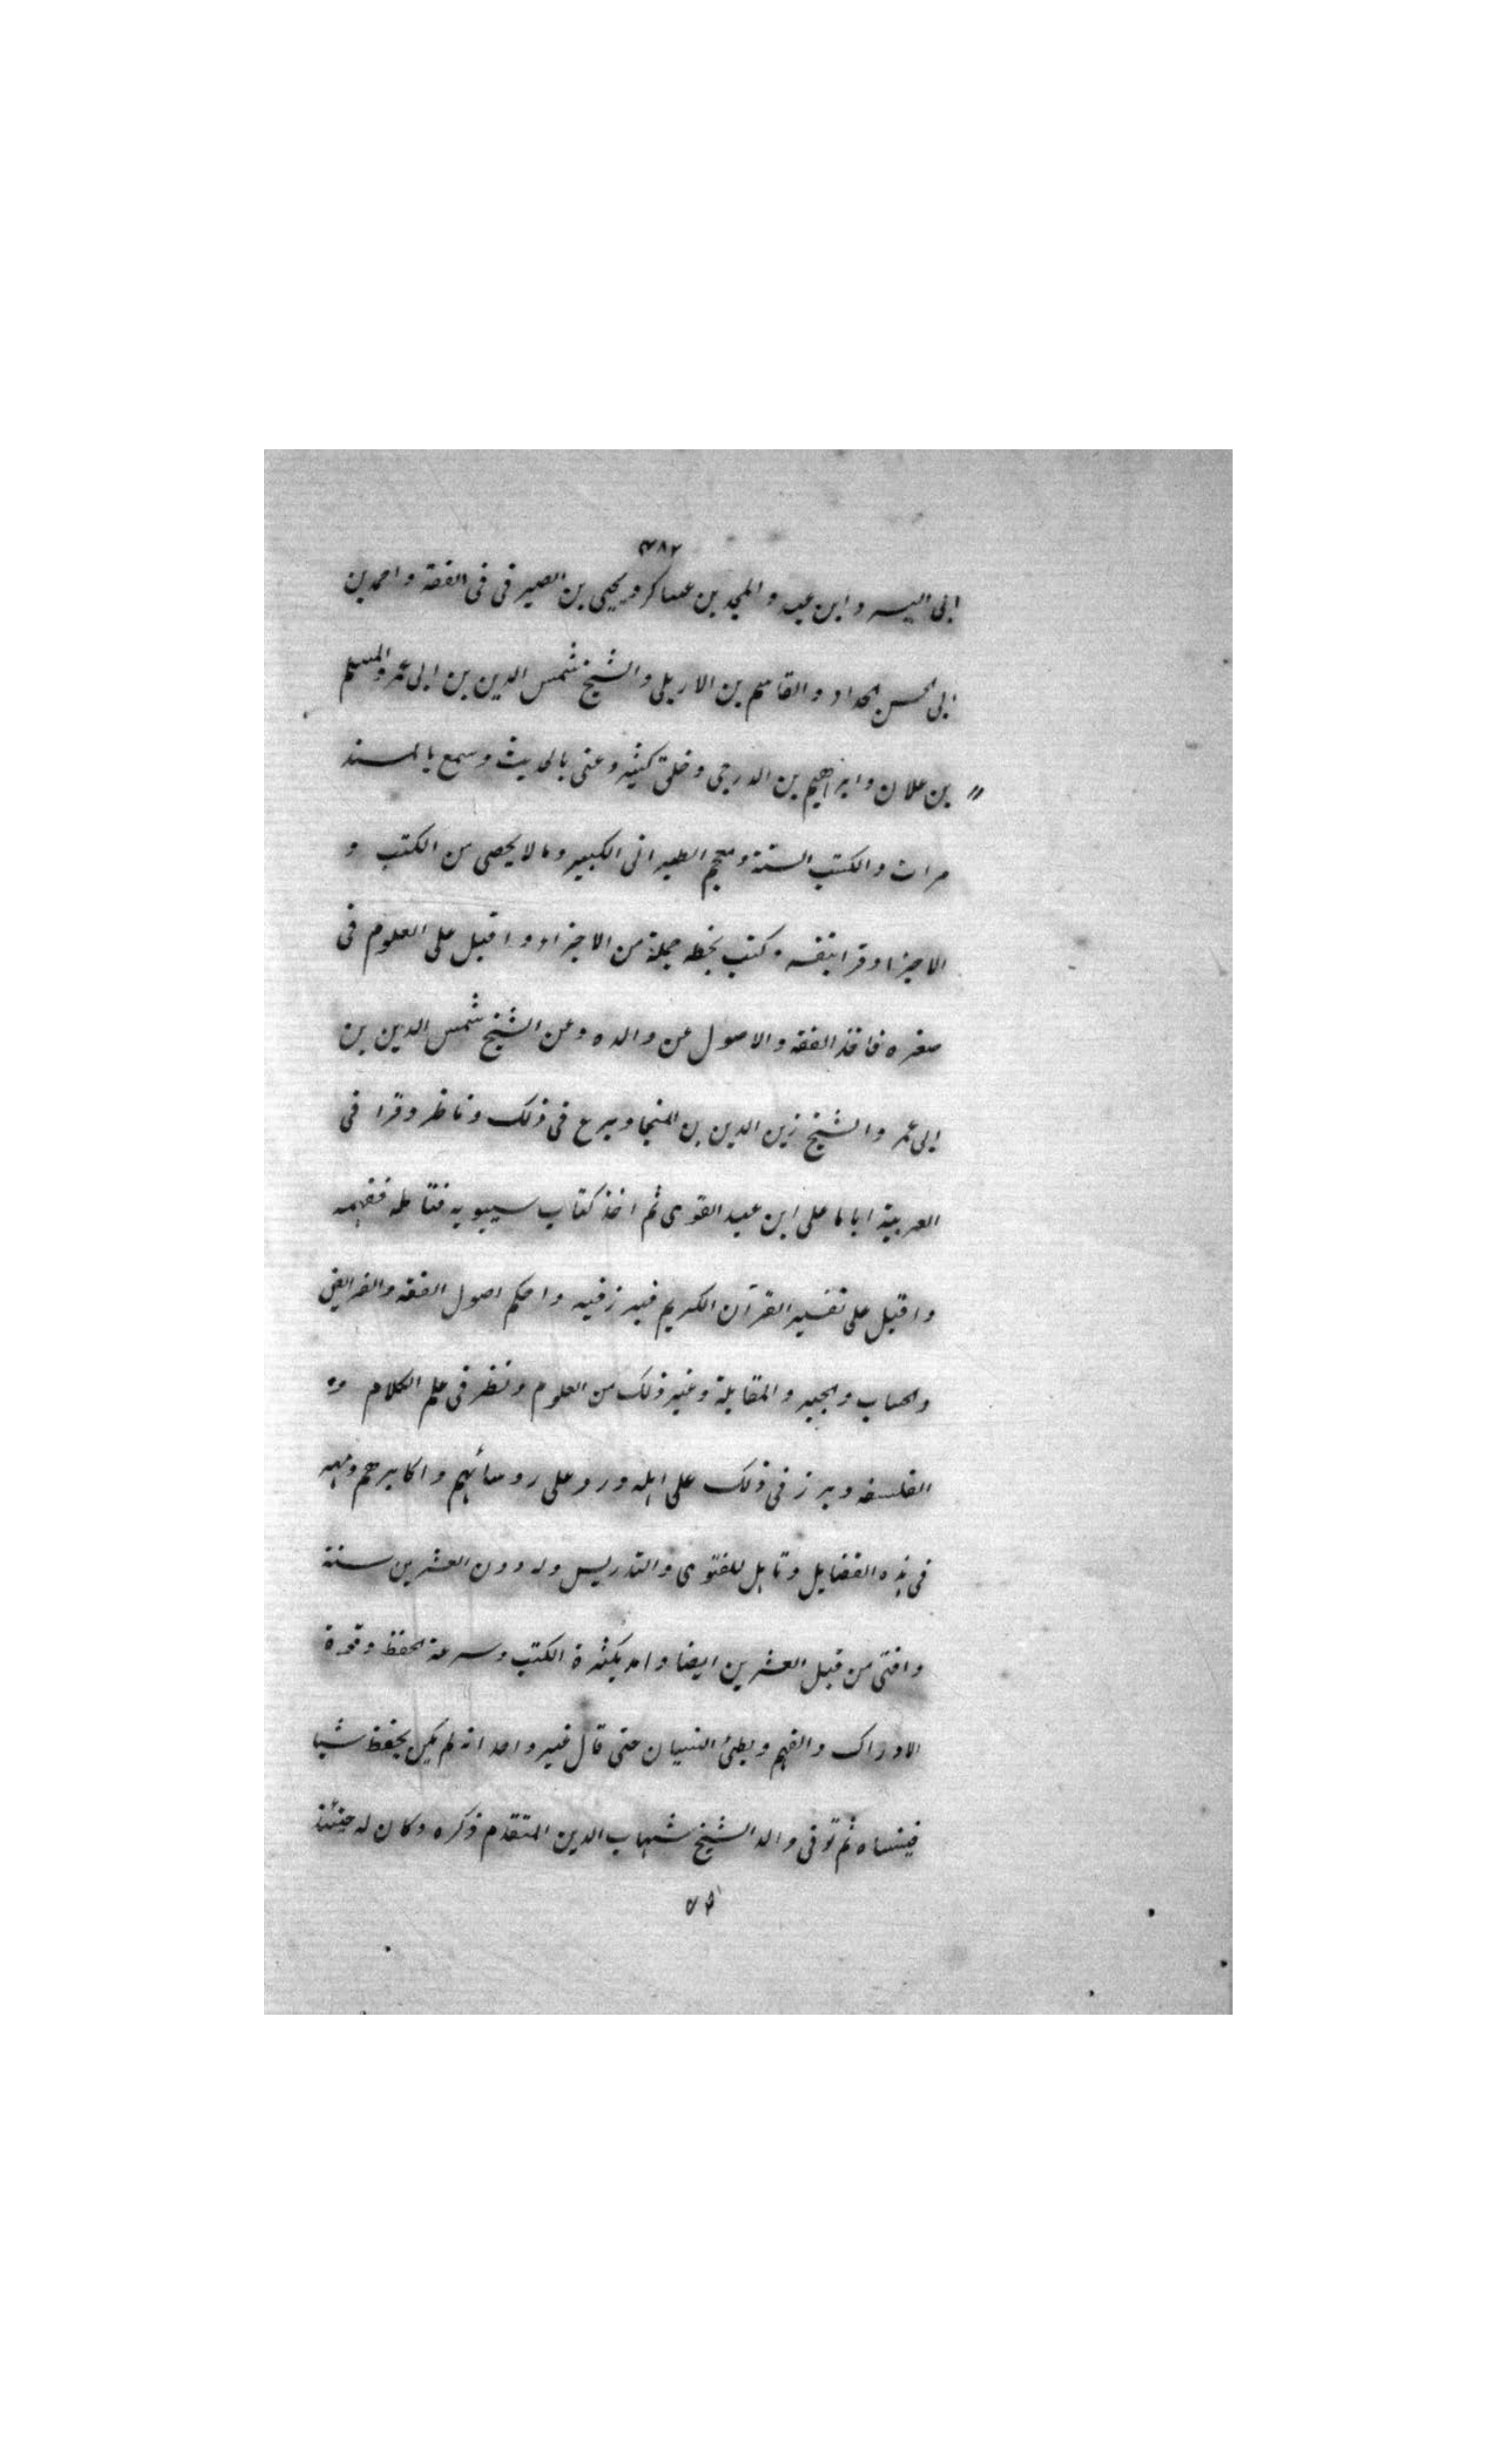 ٧٨٢
ابى اليسر وابن عبد والمجد بن عساكر ويحيى بن الصيرفى فى الفقه واحمد بن
ابى الحسن الحداد والقاسم بن الاربلى والشيخ شمس الدين بن ابى عمر والمسلم
بن علان وابراهيم بن الدرجى وخلق كثير وعنى بالحديث وسمع بالمسند
مرات والكتب الستة ومعجم الطبرانى الكبير وما لا يحصى من الكتب و
الاجزا وقرا بنفسه وكتب بخطه جملة من الاجزاء واقبل على العلوم فى
صغره فاخذ الفقه والاصول عن والده وعن الشيخ شمس الدين بن
ابى عمر والشيخ زين الدين بن المنجا وبرع فى ذلك وناظر وقرا فى
العربية اياما على ابن عبد القوى ثم اخذ كتاب سيبويه فتامله ففهمه
واقبل على تفسير القرآن الكريم فبرز فيه واحكم اصول الفقه والفرايض
والحساب والجبر والمقابلة وغير ذلك من العلوم ونظر فى علم الكلام و
الفلسفه وبرز فى ذلك على اهله ورد على روسائهم واكابرهم ومهر
فى هذه الفضايل وتاهل للفتوى والتدريس وله دون العشرين سنة
وافتى من قبل العشرين ايضا وامد بكثرة الكتب وسرعة الحفظ وقوة
الادراك والفهم وبطئ النسيان حتى قال غير واحد انه لم يكن يحفظ شيا
فينساه ثم توفى والد الشيخ شهاب الدين المتقدم ذكره وكان له حينئذ